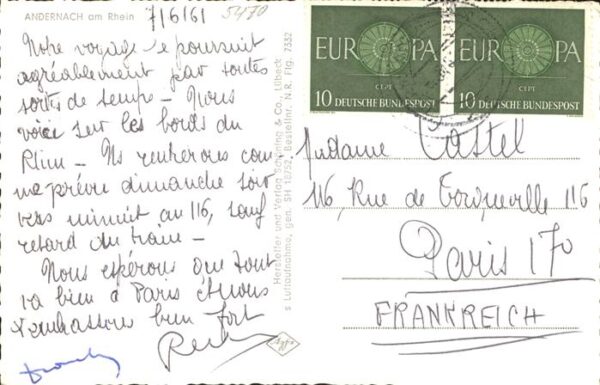 ANDERNACH am Rhein
7/6/61
5470
Notre voyage se poursuit
agréablement par toutes
sortes de temps - Nous
voici sur les bords du
Rhin - Ns rentrerons com
me prévu dimanche soir
vers minuit au 116, sauf
retard du train -
Nous espérons que tout
va bien à Paris et nous
t'embrassons bien fort
Hersteller und Verlag Schöning & Co., Lübeck
s Luftaufnahme, gen. SH 18/52, Bestellnr. N.R. Flg. 7332
EUROPA
CEPT
10 DEUTSCHE BUNDESPOST
EUROPA
CEPT
10 DEUTSCHE BUNDESPOST
Madame Castel
116, Rue de Tocqueville 116
Paris 17o
FRANKREICH
Agfa